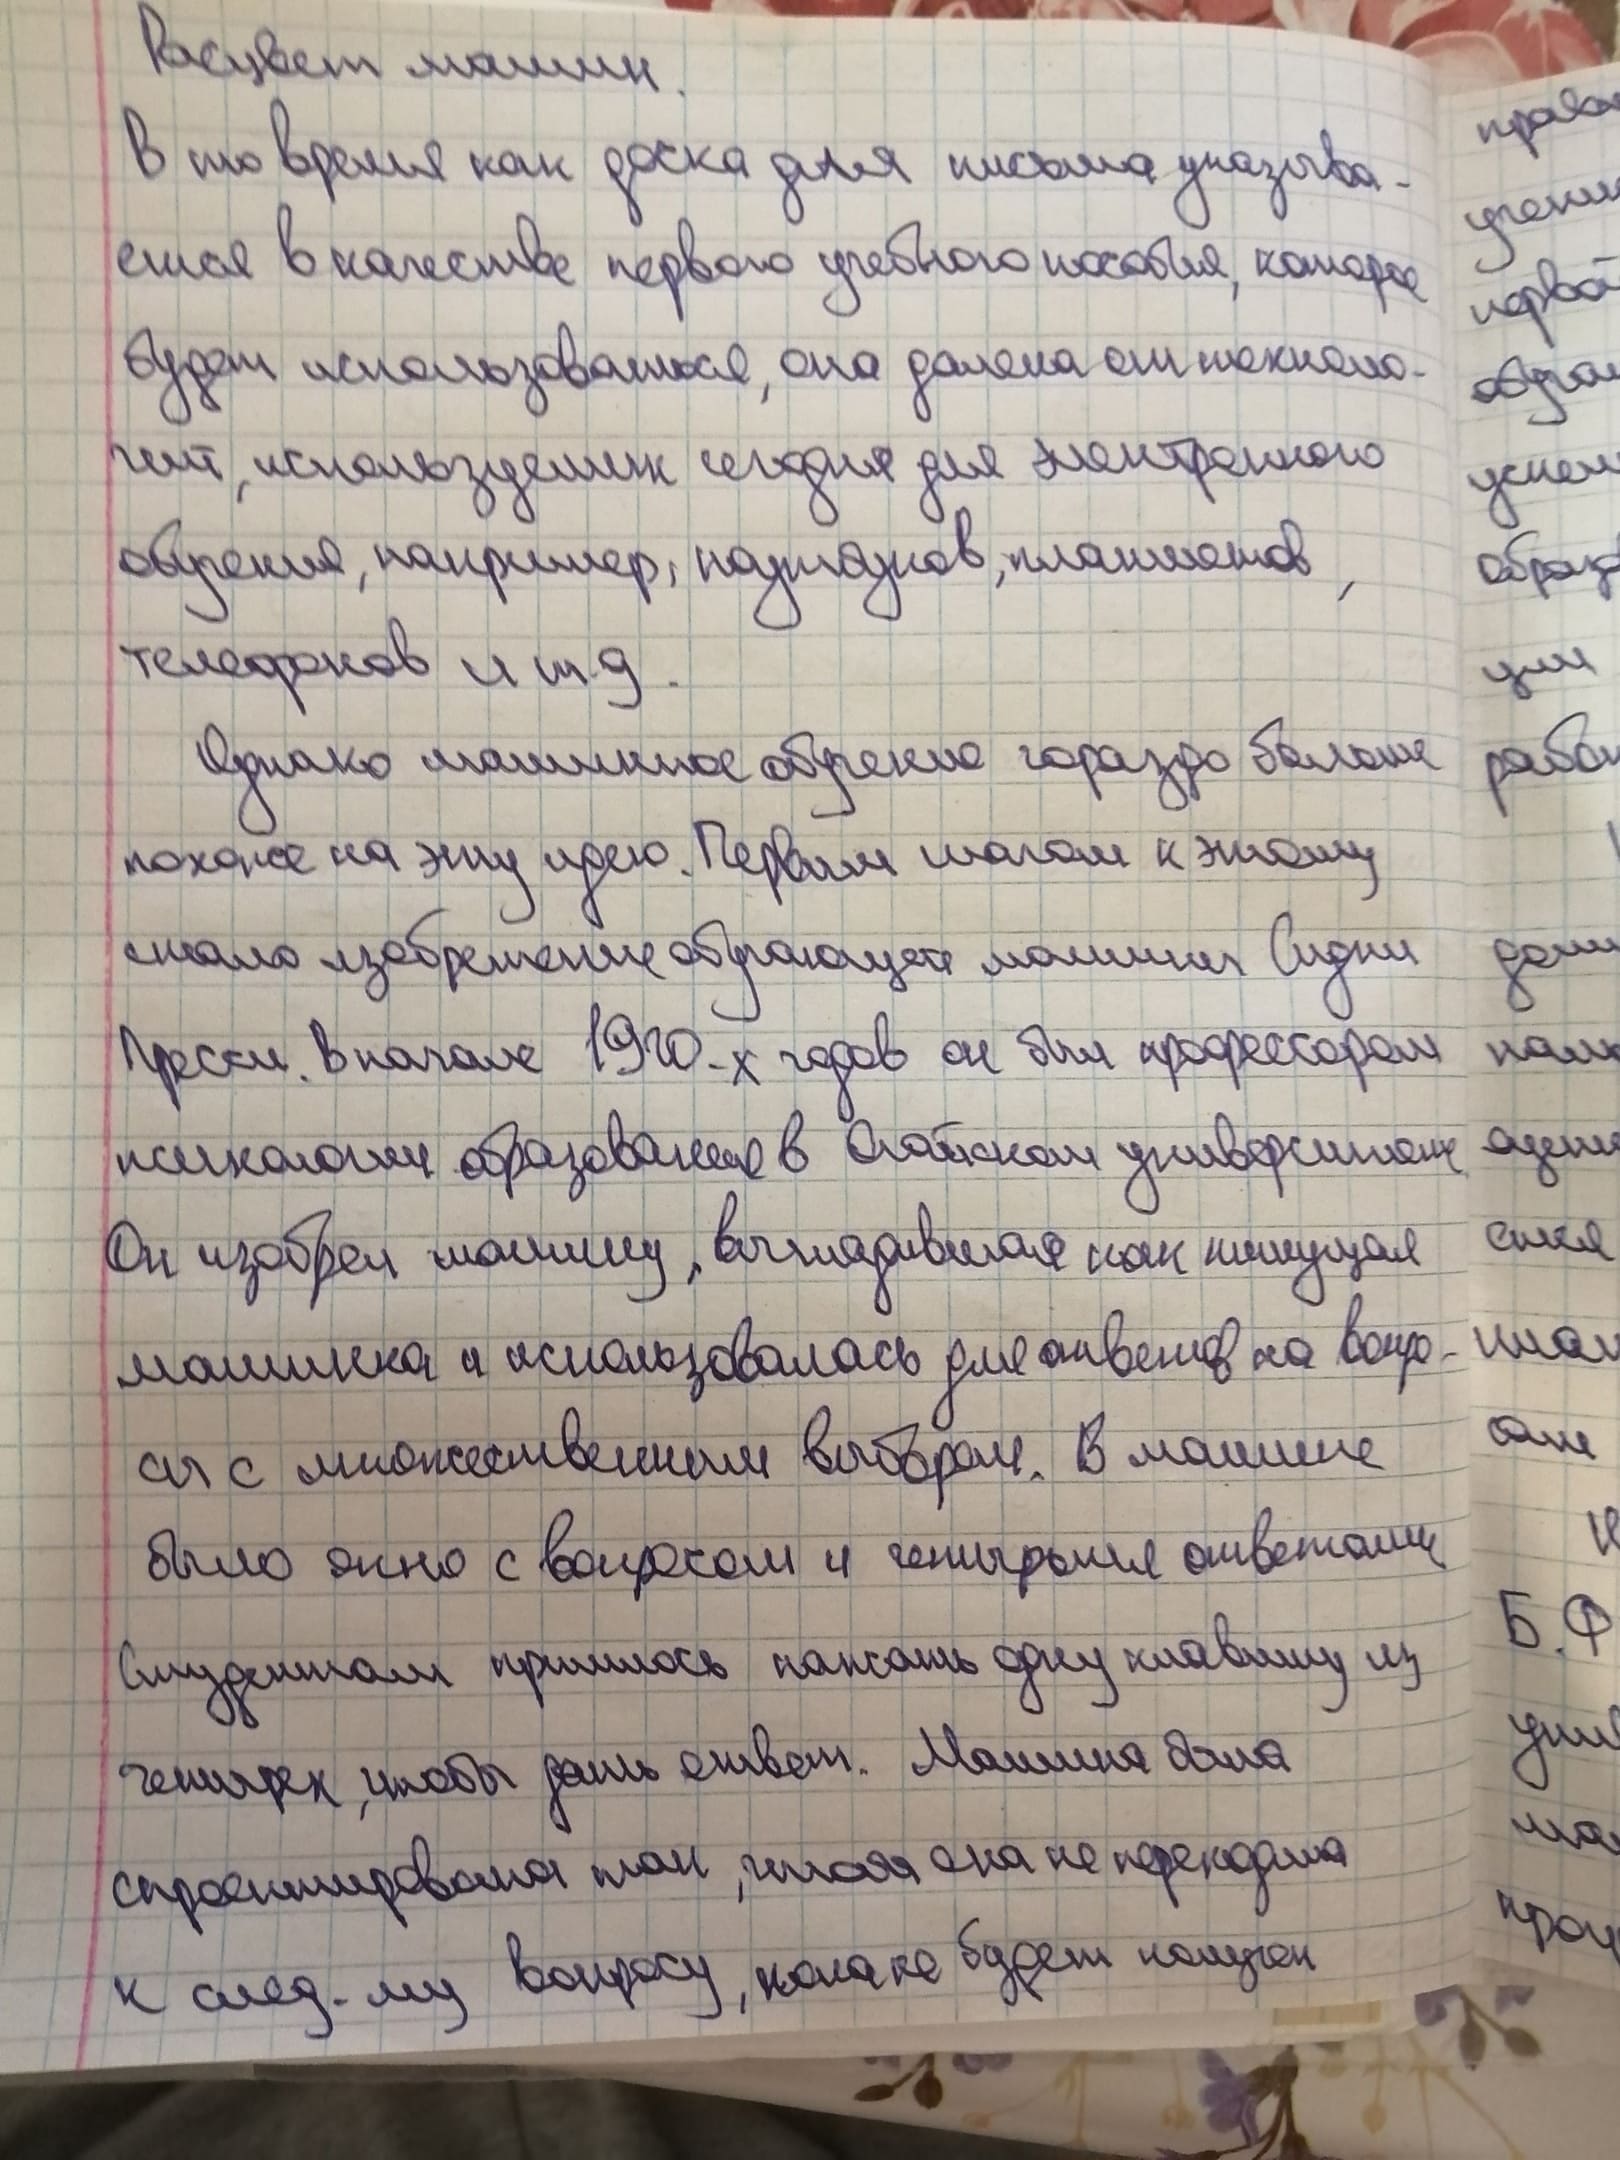 Расцвет машин.
В то время как доска для письма указыва-
ется в качестве первого учебного пособия, которое
будет использоваться, она далека от техноло-
гий, используемых сегодня для электронного
обучения, например, ноутбуков, планшетов,
телефонов и т.д.
Однако машинное обучение гораздо больше
похоже на эту идею. Первым шагом к этому
стало изобретение обучающей машины Сидни
Пресси. В начале 1920-х годов он был профессором
психологии образования в Огайском университете
Он изобрел машину, выглядевшая как пишущая
машинка и использовалась для ответов на вопро-
сы с множественным выбором. В машине
было окно с вопросом и четырьмя ответами
Студентам пришлось нажать одну клавишу из
четырех, чтобы дать ответ. Машина была
спроектирована так, чтобы она не переходила
к след-му вопросу, пока не будет получен
Б.Ф